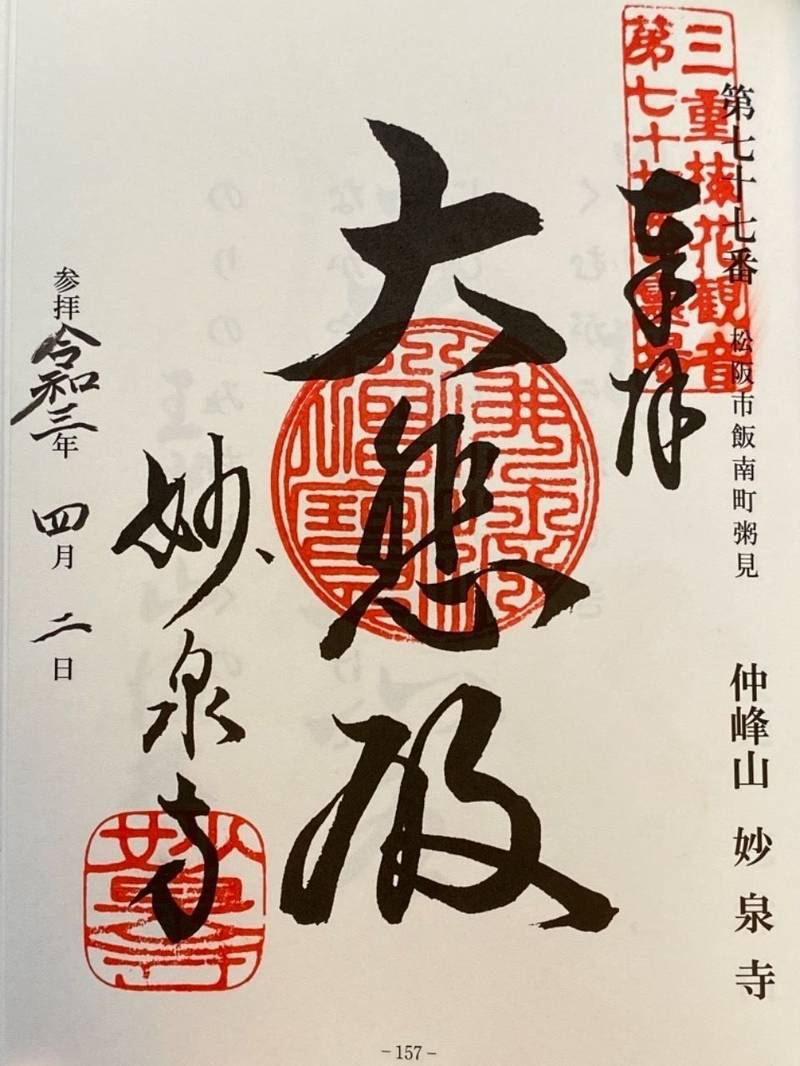 第七十七番 松阪市飯南町粥見 仲峰山 妙泉寺
三重梅花観音
第七十七番霊場
奉拝
大悲殿
佛法僧寶
妙泉寺
妙泉寺
参拝 令和三年 四月 二日
-157-